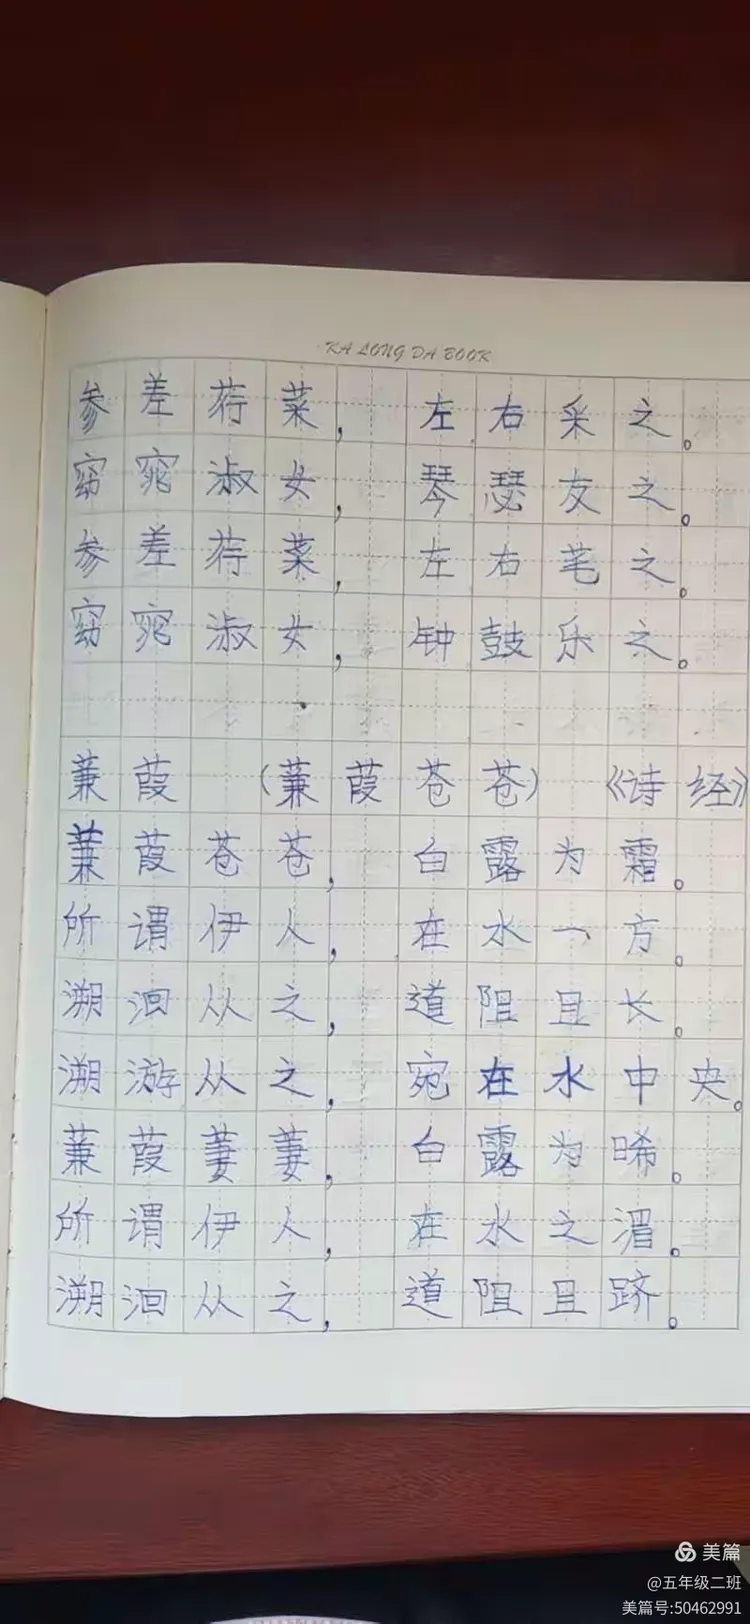 KA LONG DA BOOK
参差荇菜，左右采之。
窈窕淑女，琴瑟友之。
参差荇菜，左右芼之。
窈窕淑女，钟鼓乐之。
蒹葭（蒹葭苍苍）《诗经》
蒹葭苍苍，白露为霜。
所谓伊人，在水一方。
溯洄从之，道阻且长。
溯游从之，宛在水中央。
蒹葭萋萋，白露为晞。
所谓伊人，在水之湄。
溯洄从之，道阻且跻。
美篇
@五年级二班
美篇号:50462991